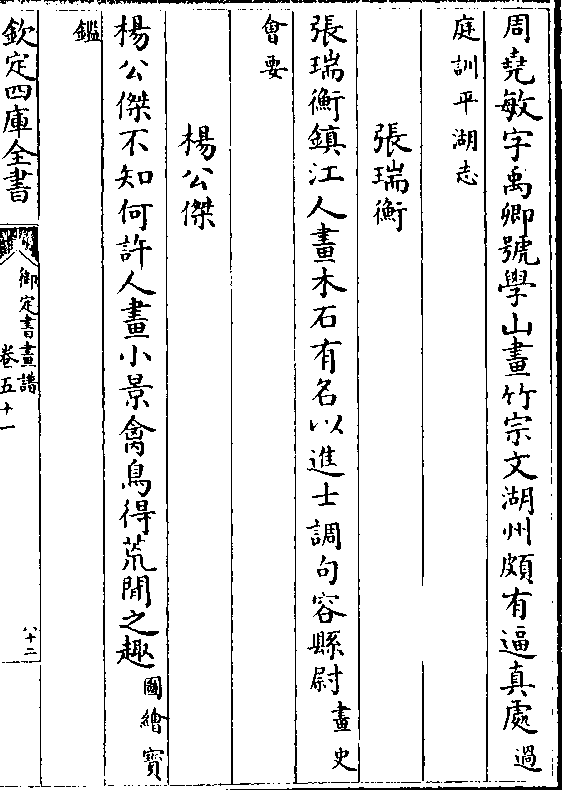 周堯敏字禹卿號學山畫竹宗文湖州頗有逼真處過
庭訓平湖志
張瑞衡
張瑞衡鎮江人畫木石有名以進士調句容縣尉畫史
會要
楊公傑
楊公傑不知何許人畫小景禽鳥得荒閒之趣圖繪寳
鑑
欽定四庫全書
御定書畫譜
卷五十一
八十二